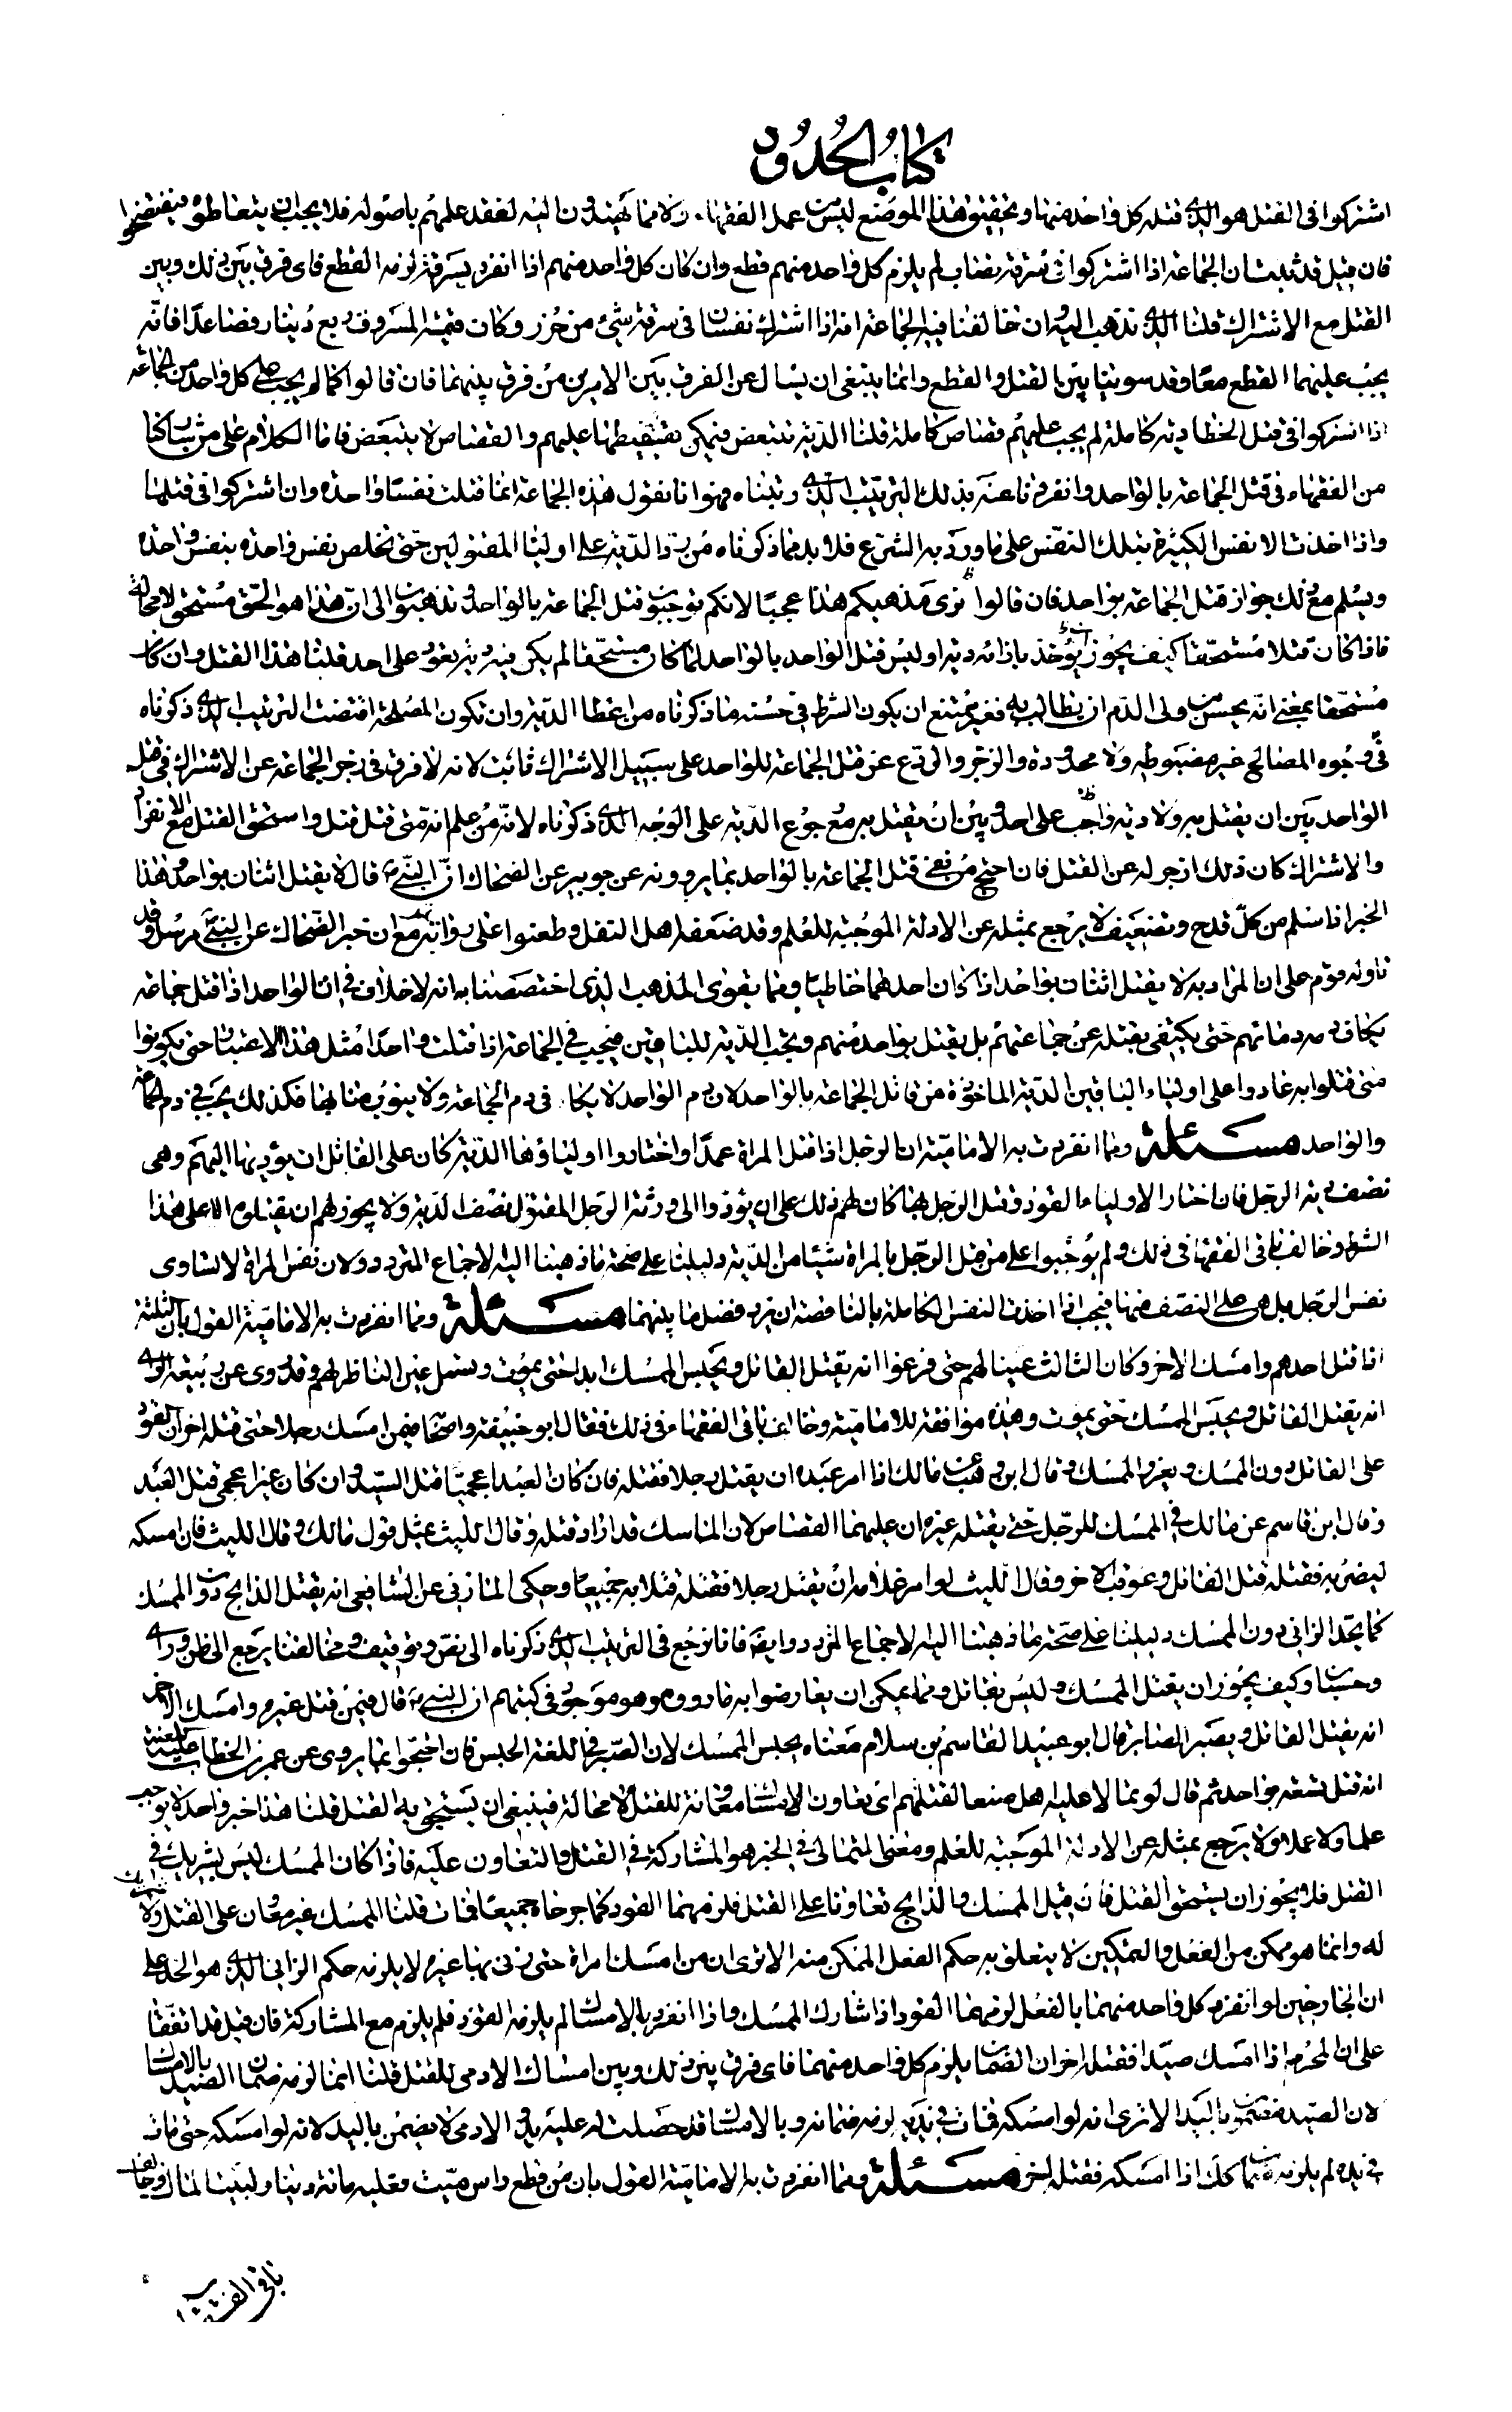 كتاب الحدود
اشتركوا فى القتل هو الذى قتله كل واحد منها وتحقيق هذا الموضع ليس من عمل الفقهاء ولا مما يهتدون اليه لفقد علمهم باصوله فلا يجب ان يتعاطوه فيفتضحوا
فان قيل قد ثبت ان الجماعة اذا اشتركوا فى سرقة نصاب لم يلزم كل واحد منهم قطع وان كان كل واحد منهم اذا انفرد بسرقته لزمه القطع فاى فرق بين ذلك وبين
القتل مع الاشتراك قلنا الذى نذهب اليه وان خالفنا فيه الجماعة انه اذا اشترك نفسان فى سرقة شئ من حرز وكان قيمة المسروق ربع دينار فصاعدا فانه
يجب عليهما القطع معا وقد سوينا بين القتل والقطع وانما ينبغى ان يسال عن الفرق بين الامرين من فرق بينهما فان قالوا كما لم يجب على كل واحد من الجماعة
اذا اشتركوا فى قتل الخطا دية كاملة لم يجب عليهم قصاص كامل قلنا الدية تتبعض فيمكن تقسيطها عليهم والقصاص لا يتبعض فاما الكلام على من شاركنا
من الفقهاء فى قتل الجماعة بالواحد وانفردنا عنه بذلك الترتيب الذى رتبناه فهو انا نقول هذه الجماعة انما قتلت نفسا واحدة وان اشتركوا فى قتلها
واذا اخذت الانفس الكثيرة بتلك النفس على ما ورد به الشرع فلا بد مما ذكرناه من رد الدية على اوليا المقتولين حتى تخلص نفس واحدة بنفس واحدة
ويسلم مع ذلك جواز قتل الجماعة بواحد فان قالوا نرى مذهبكم هذا عجبا لانكم توجبون قتل الجماعة بالواحد وتذهبون الى ان هذا هو الحق مستحق لا محالة
فاذا كان قتلا مستحقا كيف يجوز ان يؤخذ بازائه دية او ليس قتل الواحد بالواحد لما كان مستحقا لم يكن فيه دية تعود على احد قلنا هذا القتل وان كان
مستحقا بمعنى انه يحسن من ولى الدم ان يطالب به فغير ممتنع ان يكون الشرط فى حسنه ما ذكرناه من اعطا الدية وان تكون المصلحة اقتضت الترتيب الذى ذكرناه
فوجوه المصالح غير مضبوطة ولا محدودة والزجر والردع عن قتل الجماعة للواحد على سبيل الاشتراك ثابت لانه لا فرق فى زجر الجماعة عن الاشتراك فى قتل
الواحد بين ان يقتل به ولا دية واجب على احد وبين ان يقتل به مع رجوع الدية على الوجه الذى ذكرناه لانه من علم انه متى قتل قتل واستحق القتل مع الانفراد
والاشتراك كان ذلك ازجر له عن القتل فان احتج من نفى قتل الجماعة بالواحد بما يروونه عن جويبر عن الضحاك ان النبى قال لا يقتل اثنان بواحد وهذا
الخبر اذا سلم من كل قدح وتضعيف لا يرجع بمثله عن الادلة الموجبة للعلم وقد ضعفه اهل النقل وطعنوا على رواته مع ان خبر الضحاك عن النبى مرسل وقد
تاوله قوم على ان المراد به لا يقتل اثنان بواحد اذا كان احدهما خاطيا ومما يقوى المذهب الذى اختصصنا به انه لا خلاف فى ان الواحد اذا قتل جماعة
يكافى دمه دمائهم حتى يكتفى بقتله عن جماعتهم بل يقتل بواحد منهم وتجب الدية للباقين فيجب فى الجماعة اذا قتلت واحدا مثل هذا الاعتبار حتى يكونوا
متى قتلوا به عادوا على اولياء الباقين الدية الماخوذة من قاتل الجماعة بالواحد لان دم الواحد لا يكافى دم الجماعة ولا ينوب منابها فكذلك يجب فى دم الجماعة
والواحد مسئلة ومما انفردت به الامامية ان الرجل اذا قتل المراة عمدا واختاروا اولياؤها الدية كان على القاتل ان يؤديها اليهم وهى
نصف دية الرجل فان اختار الاولياء القود وقتل الرجل بها كان لهم ذلك على ان يؤدوا الى ورثة الرجل المقتول نصف الدية ولا يجوز لهم ان يقتلوه الا على هذا
الشرط وخالف باقى الفقها فى ذلك ولم يوجبوا على من قتل الرجل بالمراة شيئا من الدية دليلنا على صحة ما ذهبنا اليه الاجماع المتردد ولان نفس المراة لا تساوى
نفس الرجل بل هى على النصف منها فيجب اذا اخذت النفس الكاملة بالناقصة ان يرد فضل ما بينهما مسئلة ومما انفردت به الامامية القول بان الثلثة
اذا قتل احدهم وامسك الاخر وكان الثالث عينا لهم حتى فرغوا انه يقتل القاتل ويحبس الممسك ابدا حتى يموت وتسمل عين الناظر لهم وقد روى عن ربيعة الراى
انه يقتل القاتل ويحبس الممسك حتى يموت وهذه موافقة للامامية وخالف باقى الفقهاء فى ذلك فقال ابو حنيفة واصحابه فيمن امسك رجلا حتى قتله اخر ان القود
على القاتل دون الممسك ويعزر الممسك وقال ابن وهب عن مالك اذا امر عبده ان يقتل رجلا فقتله فان كان العبد اعجميا قتل السيد وان كان غير اعجمى قتل العبد
وقال ابن قاسم عن مالك فى الممسك للرجل حتى يقتله غيره ان عليهما القصاص لان الماسك قد اراد قتله وقال الليث بمثل قول مالك وقال الليث فان امسكه
ليضربه فقتله قتل القاتل وعوقب الاخر وقال الليث لو امر غلامه ان يقتل رجلا فقتله قتلا به جميعا وحكى المازنى عن الشافعى انه يقتل الذابح دون الممسك
كما يحد الزانى دون الممسك دليلنا على صحة ما ذهبنا اليه الاجماع المتردد وايضا فانا نرجع فى الترتيب الذى ذكرناه الى نص وتوقيف ومخالفنا يرجع الى ظن وراى
وحسبان وكيف يجوز ان يقتل الممسك وليس بقاتل ومما يمكن ان يعارضوا به ما رووه وهو موجود فى كتبهم ان النبى قال فيمن قتل غيره وامسك الاخر
انه يقتل القاتل ويصبر الصابر قال ابو عبيد القاسم بن سلام معناه يحبس الممسك لان الصبر فى اللغة الحبس فان احتجوا بما يروى عن عمر بن الخطاب
انه قتل سبعة بواحد ثم قال لو تمالا عليه اهل صنعا لقتلتهم اى تعاون الامساك معاونة للقتل لا محالة فينبغى ان يستحق به القتل قلنا هذا خبر واحد لا يوجب
علما ولا عملا ولا يرجع بمثله عن الادلة الموجبة للعلم ومعنى التمالى فى الخبر هو المشاركة فى القتل والتعاون عليه فاذا كان الممسك ليس بشريك فى
القتل فلا يجوز ان يستحق القتل فان قيل الممسك والذابح تعاونا على القتل فلزمهما القود كما جرحاه جميعا فمات قلنا الممسك غير معان على القتل ولا
له وانما هو ممكن من الفعل والتمكين لا يتعلق به حكم الفعل الممكن منه الا ترى ان من امسك امراة حتى زنى بها غيره لا يلزمه حكم الزانى الذى هو الحد على
ان الجارحين لو انفرد كل واحد منهما بالفعل لزمهما القود اذا شارك الممسك واذا انفرد بالامساك لم يلزمه القود فلم يلزم مع المشاركة فان قيل قد اتفقنا
على ان المحرم اذا امسك صيدا فقتله اخر ان الضمان يلزم كل واحد منهما فاى فرق بين ذلك وبين امساك الادمى للقتل قلنا انما لزمه ضمان الصيد بالامساك
لان الصيد مضمون باليد الا ترى انه لو امسكه فمات فى يده لزمه ضمانه وبالامساك قد حصلت له عليه يد والادمى لا يضمن باليد لانه لو امسكه حتى مات
فى يده لم يلزمه ضمان كذلك اذا امسكه فقتله اخر مسئلة ومما انفردت به الامامية القول بان من قطع راس ميت فعليه مائة دينار لبيت المال وخالف
باقى الفقهاء